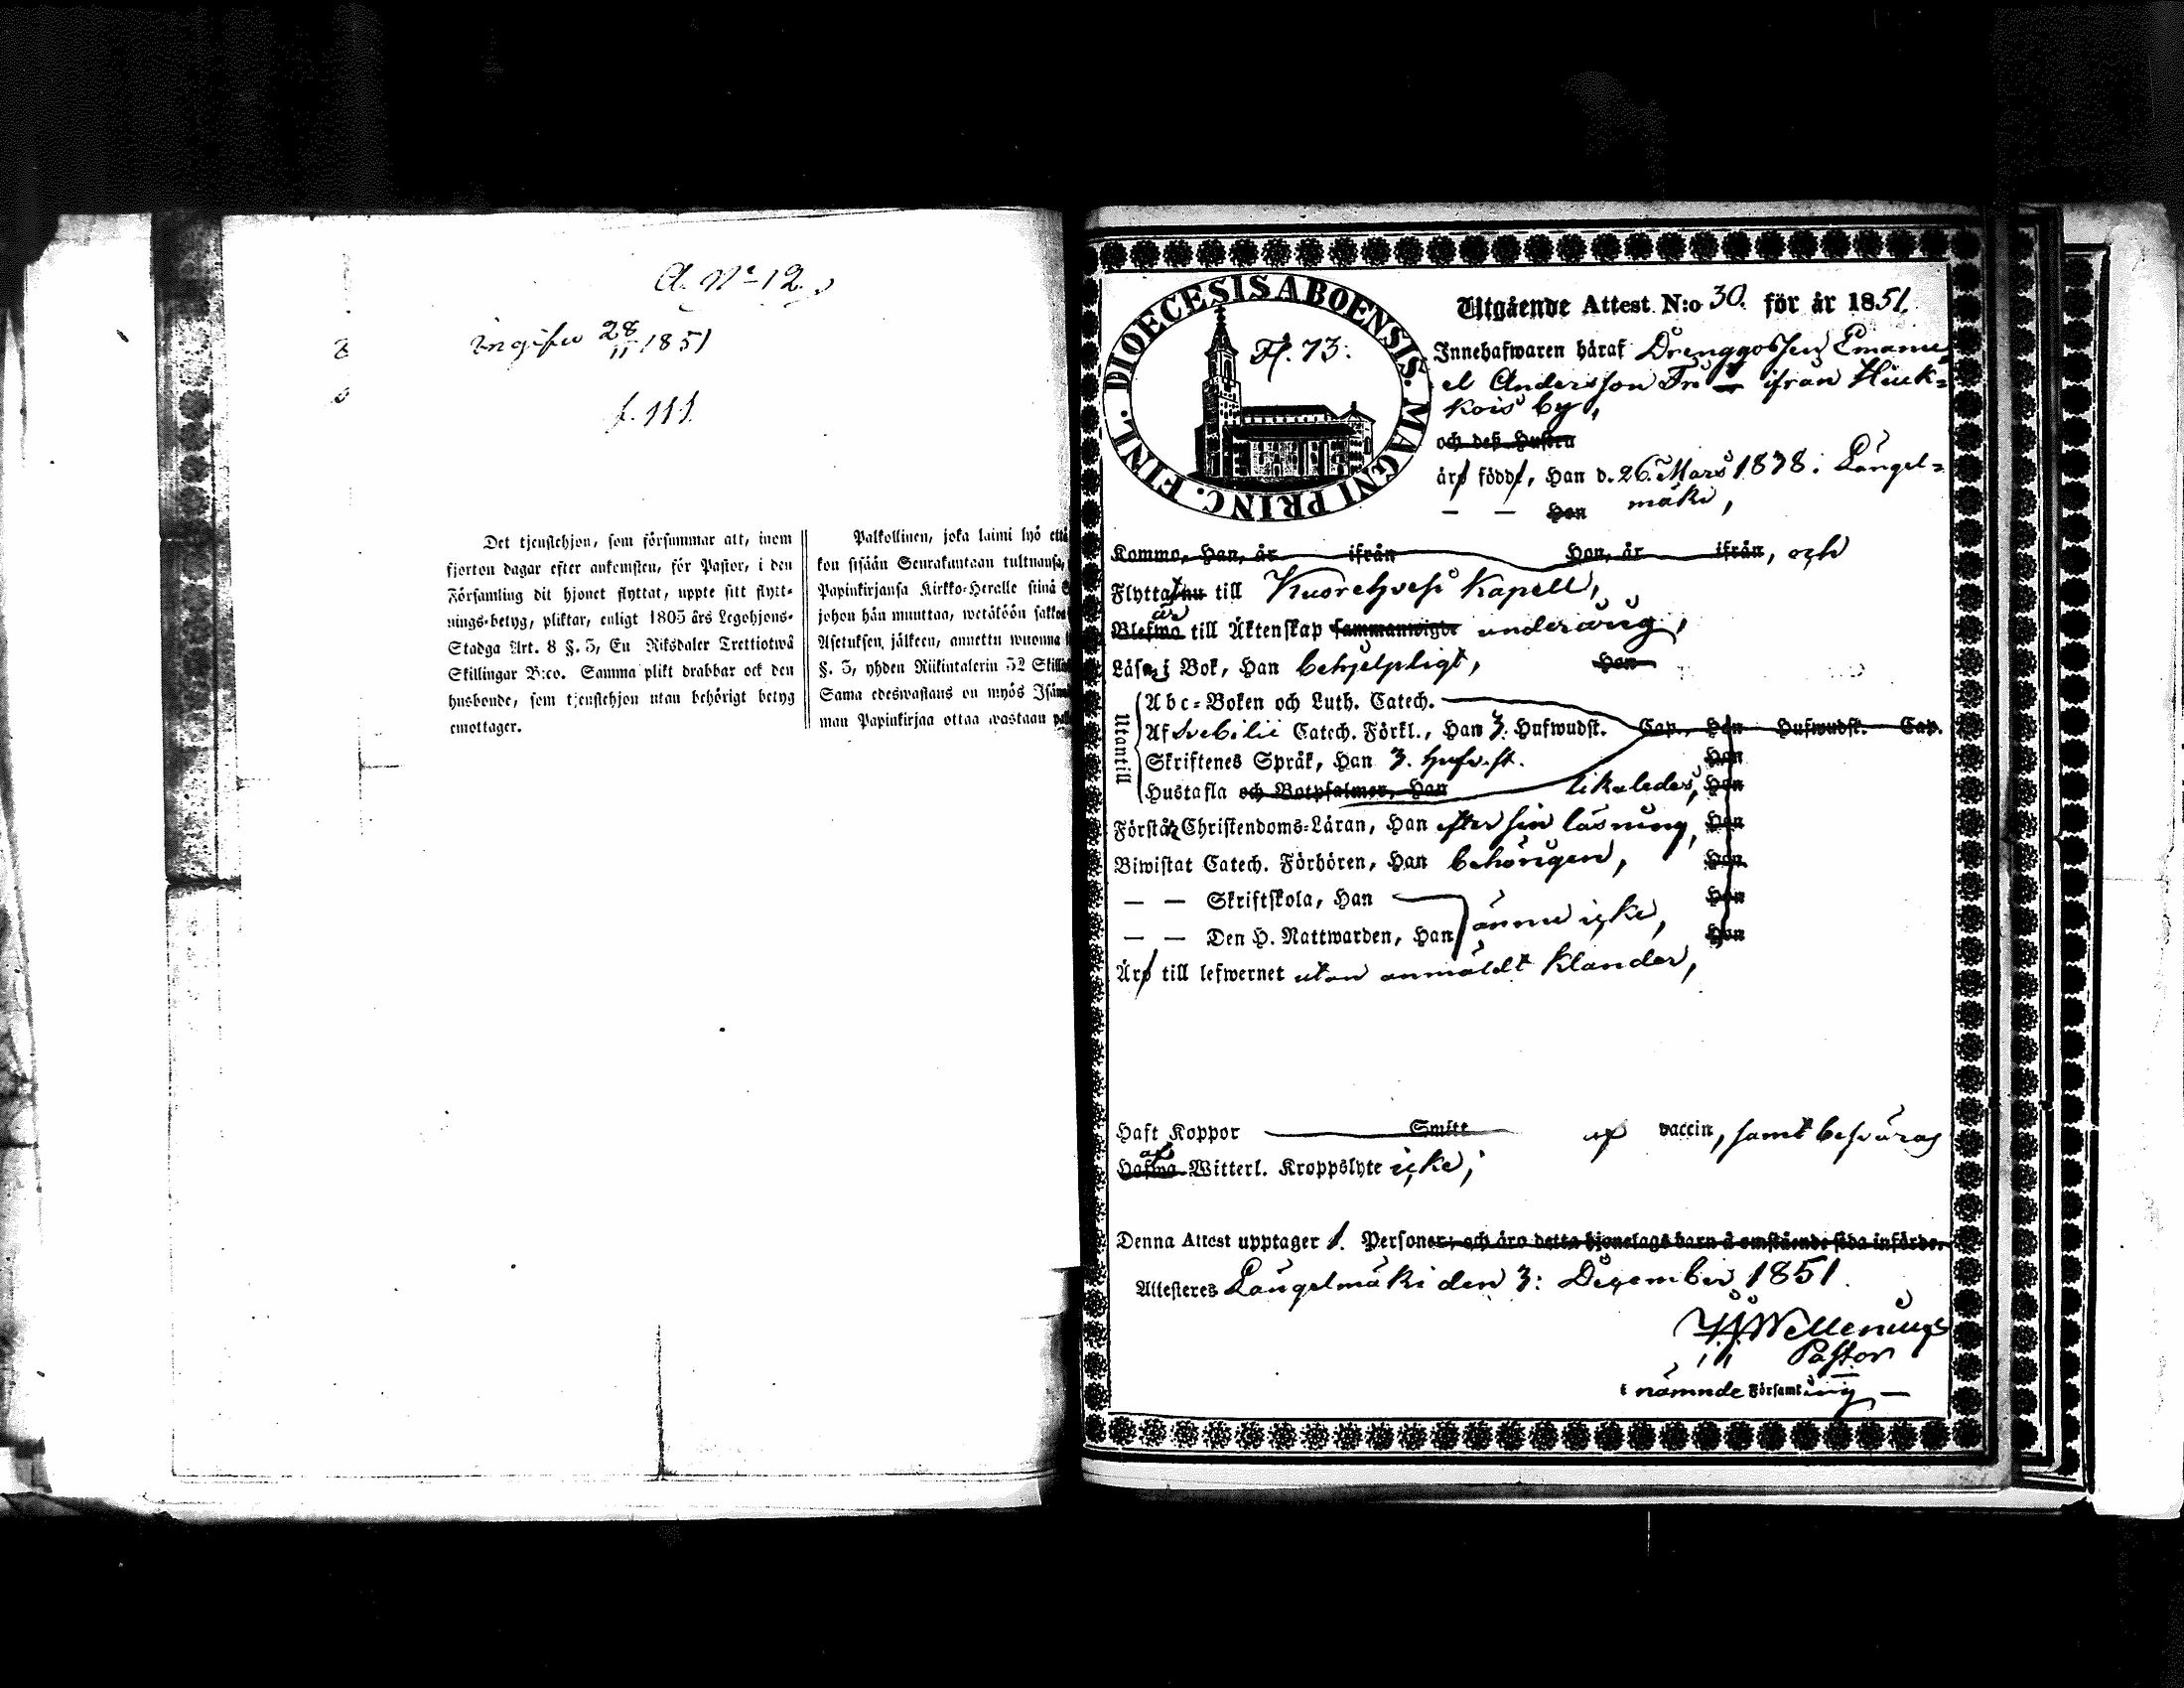 A. N:o 12.
ingifw 28/11 1851
f. 111.
Det tjenstehjon, som försummar att, inom
fjorton dagar efter ankomsten, för Pastor, i den
Församling dit hjonet flyttat, uppte sitt flytt-
nings-betyg, pliktar, enligt 1805 års Legohjons-
Stadga Art. 8 §. 5, En Riksdaler Trettiotwå
Skillingar B:co. Samma plikt drabbar ock den
husbonde, som tjenstehjon utan behörigt betyg
emottager.
Palkollinen, joka laimi lyö että
kon sisään Seurakuntaan tultuansa,
Papinkirjansa Kirkko-Herralle siinä
johon hän muuttaa, wetäköön sakkoa
Asetuksen jälkeen, annettu wuonna
§. 5, yhden Riikintalerin 32 Skilli
Sama edeswastaus on myös Isän
man Papinkirjaa ottaa wastaan
DIOECESIS ABOENSIS. MAGNI PRINC. FINL.
Fl. 73:
Utgående Attest N:o 30. för år 1851.
Innehafwaren häraf Drenggossen Emanu-
el Andersson ifrån Hiuk-
kois by,
och deß Hustru
äro födde, Han d. 26. Mars 1838 i Längel-
— — Hon mäki,
Kommo, Han, år ifrån Hon, år ifrån, och
Flytta nu till Kuorehvesi Kapell,
är
Blefwo till Äktenskap sammanwigde underårig,
Läsa i Bok, Han behjelpligt, Hon
Utantill
Abc-Boken och Luth. Catech.
Af Svebilii Catech. Förkl., Han 3. Hufwudst. Cap. Hon Hufwudst. Cap.
Skriftenes Språk, Han 3. hufv.st. Hon
Hustafla och Botpsalmer, Han likaledes, Hon
Förstår Christendoms-Läran, Han efter sin läsning, Hon
Biwistat Catech. Förhören, Han behörigen, Hon
— — Skriftskola, Han Hon
ännu icke,
— — Den H. Nattwarden, Han Hon
Äro till lefwernet utan anmäldt klander,
Haft Koppor Smitt af vaccin, samt besväras
af
Hafwa Witterl. Kroppslyte icke;
Denna Attest upptager 1. Personer; och äro detta hjonelags barn å omstående sida införde.
Attesteres Längelmäki den 3: December 1851.
Wellenius
Pastor
i nämnde Församling